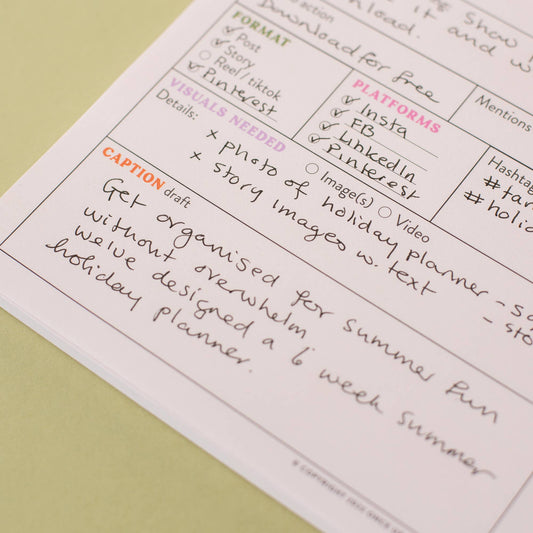 it and w
action
Download for free
FORMAT
Post
Story
Reel/tiktok
Pinterest
PLATFORMS
Insta
FB
LinkedIn
Pinterest
Mentions
VISUALS NEEDED
Details:
Image(s) Video
x photo of holiday planner
x story images w. text
CAPTION draft
Get organised for summer fun
without overwhelm
we've designed a 6 week summer
holiday planner.
© COPYRIGHT